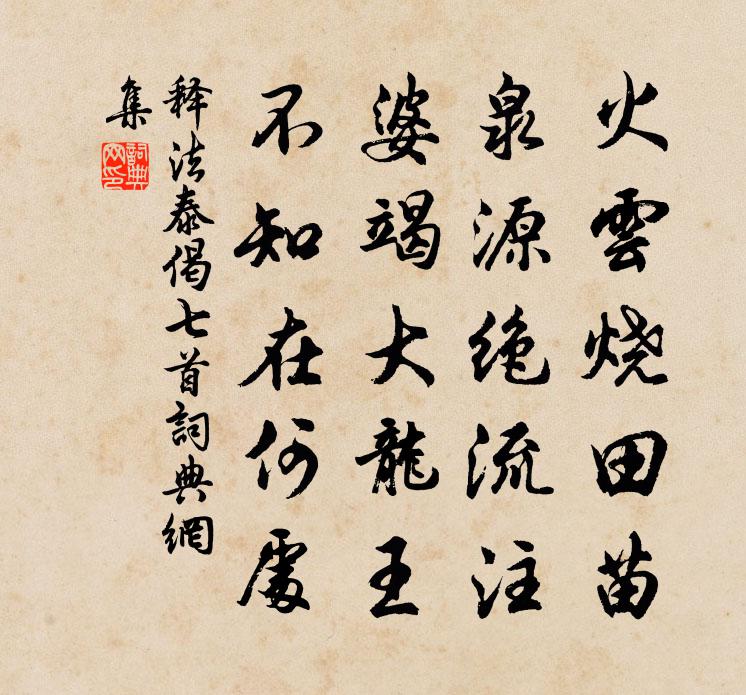 火雲燒田苗
泉源絶流注
婆竭大龍王
不知在何處
释法泰偈七首詞典網
集
詞典網印